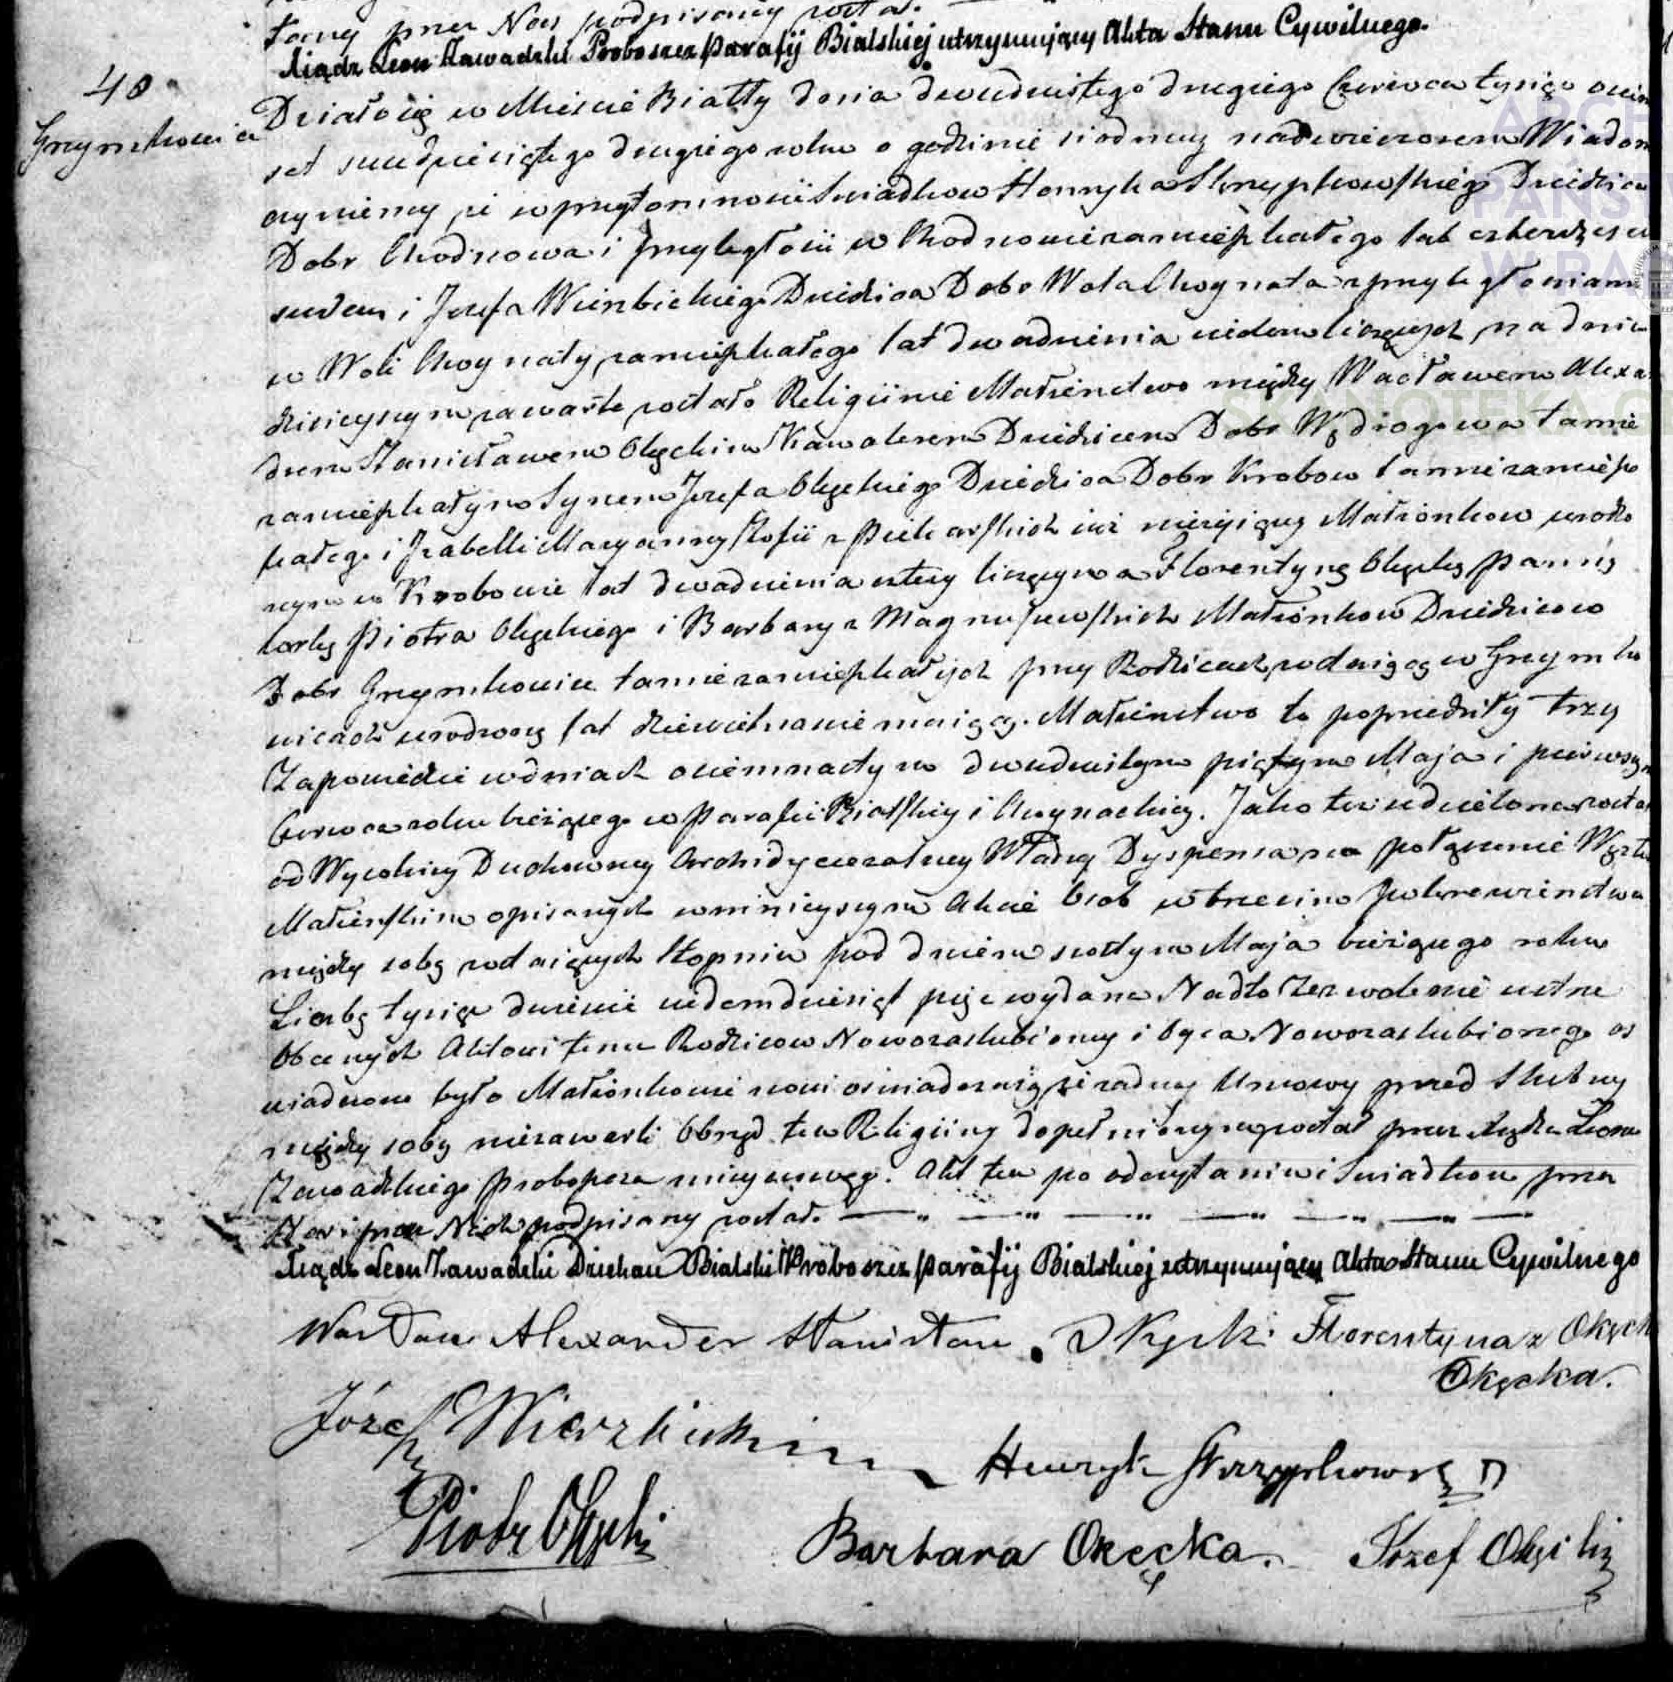 tany przez Nas podpisany został.
Xiądz Leon Zawadzki Proboszcz parafij Bialskiej utrzymujący Akta Stanu Cywilnego.
40
Grzymkowice
Działo się w Mieście Białły dnia dwudziestego drugiego Czerwca tysiąc ośm
set sześdziesiątego drugiego roku o godzinie siodmey nadwieczorem Wiadom
czyniemy, że w przytomności Swiadkow Henryka Skrzypkowskiego Dziedzica
Dobr Chodnowa i przyległości w Chodnowie zamieszkałego lat czterdzieści
siedem i Jozefa Wierzbickiego Dziedzica Dobr Wola Chojnata z przyległosciami
w Woli Choynaty zamieszkałego lat dwadzieścia siedem liczących, na dniu
dzisieyszym zawarte zostało Religijnie Małżeństwo między Wacławem Alexan
drem Stanisławem Okęckim Kawalerem Dziedzicem Dobr Wędrogowa tamże
zamieszkałym Synem Jozefa Okęckiego Dziedzica Dobr Krobow tamże zamiesz
kałego i Izabelli Maryanny Zofii z Piekarskich już nieżyiącey Małżonkow urodzo
nym w Krobowie lat dwadzieścia cztery liczącym a Florentyną Okęcką panną
corką Piotra Okęckiego i Barbary z Magnuszewskich Małżonkow Dziedzicow
Dobr Grzymkowice tamże zamieszkałych przy Rodzicach zostaiącą w Grzymko
wicach urodzoną lat dziewietnaście maiącą. Małżeństwo to poprzedziły trzy
Zapowiedzie w dniach osiemnastym dwudziestym piątym Maja i pierwszym
Czerwca roku bieżącego w Parafii Bialskiey i Choynackiey. Jako też udzielona została
od Wysokiey Duchowney Archidyecezalney Władzy Dyspensa na połączenie Węzłem
Małżeńskim opisanych w ninieyszym Akcie Osob w trzecim pokrewieństwa
między sobą zostaiących Stopniu pod dniem szostym Maja bieżącego roku
Liczbą tysiąc dwieście siedemdziesiąt pięc wydana Nadto Zezwolenie ustne
Obecnych Aktowi temu Rodzicow Nowozaslubioney i Oyca Nowozaslubionego os
wiadczone było Małżonkowie nowi oświadczaią, że żadney Umowy przed Slubney
między sobą niezawarli Obrzęd ten Religiiny dopełniony został przez Xiędza Leona
Zawadzkiego Proboszcza mieyscowego. Akt ten po odczytaniu i Swiadkom przez
Nas i przez Nich podpisany został.
Xiądz Leon Zawadzki Dziekan Bialski Proboszcz parafij Bialskiej utrzymujący Akta Stanu Cywilnego
Wacław Alexander Stanisław Okęcki Florentyna z Okęck
Okęcka.
Józef Wierzbicki
Henryk Skrzypkowski
Piotr Okęcki
Barbara Okęcka. Józef Okęcki